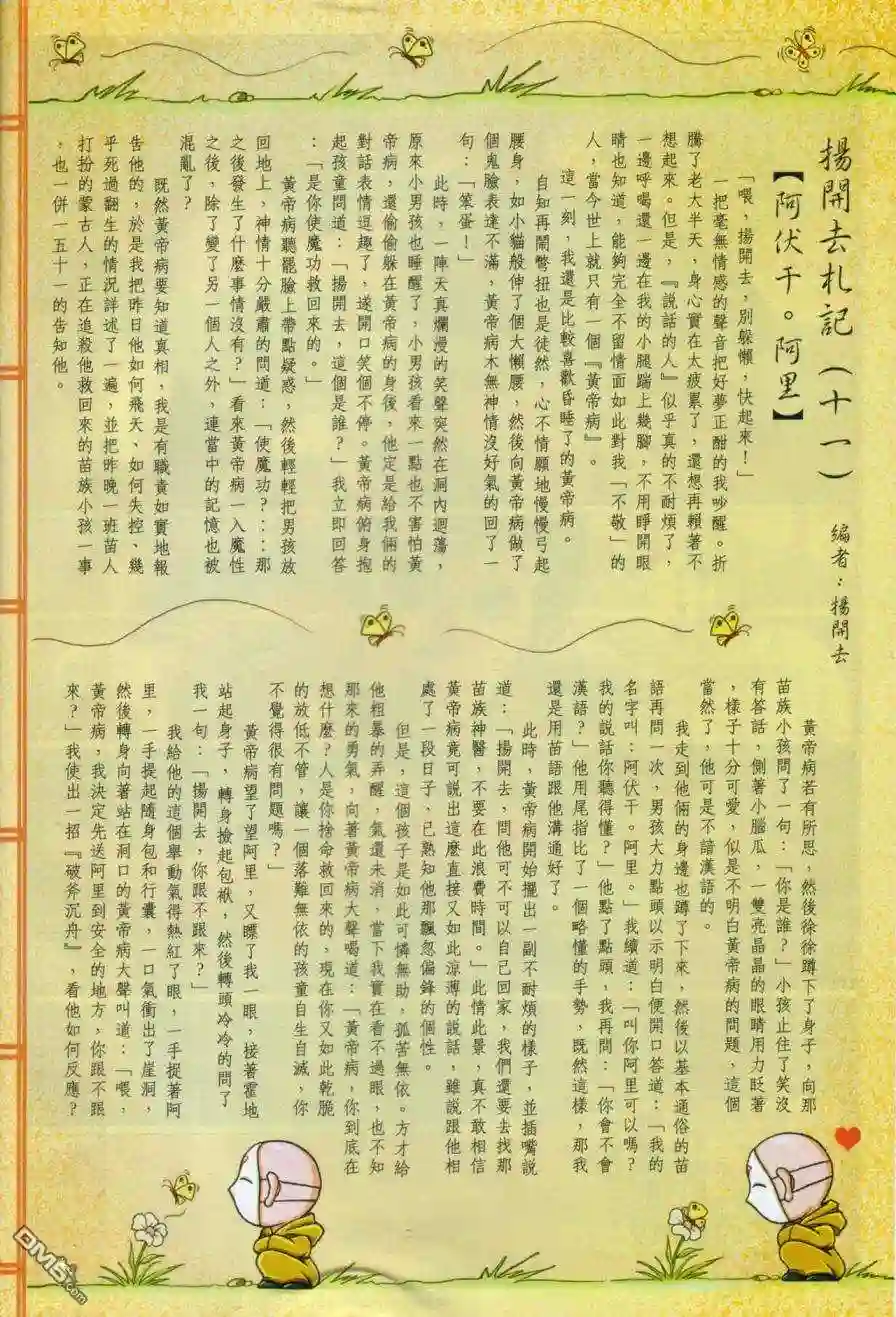 揚開去札記（十一）
編者：揚開去
【阿伏干。阿里】
「喂，揚開去，別躲懶，快起來！」
一把毫無情感的聲音把好夢正酣的我吵醒。折
騰了老大半天，身心實在太疲累了，還想再賴著不
想起來。但是，『說話的人』似乎真的不耐煩了，
一邊呼喝還一邊在我的小腿踹上幾腳，不用睜開眼
睛也知道，能夠完全不留情面如此對我「不敬」的
人，當今世上就只有一個『黃帝病』。
這一刻，我還是比較喜歡昏睡了的黃帝病。
自知再鬧彆扭也是徒然，心不情願地慢慢弓起
腰身，如小貓般伸了個大懶腰，然後向黃帝病做了
個鬼臉表達不滿，黃帝病木無神情沒好氣的回了一
句：「笨蛋！」
此時，一陣天真爛漫的笑聲突然在洞內迴蕩，
原來小男孩也睡醒了，小男孩看來一點也不害怕黃
帝病，還偷偷躲在黃帝病的身後，他定是給我倆的
對話表情逗趣了，遂開口笑個不停。黃帝病俯身抱
起孩童問道：「揚開去，這個是誰？」我立即回答
：「是你使魔功救回來的。」
黃帝病聽罷臉上帶點疑惑，然後輕輕把男孩放
回地上，神情十分嚴肅的問道：「使魔功？：：那
之後發生了什麼事情沒有？」看來黃帝病一入魔性
之後，除了變了另一個人之外，連當中的記憶也被
混亂了？
既然黃帝病要知道真相，我是有職責如實地報
告他的，於是我把昨日他如何飛天、如何失控、幾
乎死過翻生的情況詳述了一遍，並把昨晚一班苗人
打扮的蒙古人，正在追殺他救回來的苗族小孩一事
，也一併一五十一的告知他。
黃帝病若有所思，然後徐徐蹲下了身子，向那
苗族小孩問了一句：「你是誰？」小孩止住了笑沒
有答話，側著小腦瓜，一雙亮晶晶的眼睛用力眨著
，樣子十分可愛，似是不明白黃帝病的問題，這個
當然了，他可是不諳漢語的。
我走到他倆的身邊也蹲了下來，然後以基本通俗的苗
語再問一次，男孩大力點頭以示明白便開口答道：「我的
名字叫：阿伏干。阿里。」我續道：「叫你阿里可以嗎？
我的說話你聽得懂？」他點了點頭，我再問：「你會不會
漢語？」他用尾指比了一個略懂的手勢，既然這樣，那我
還是用苗語跟他溝通好了。
此時，黃帝病開始擺出一副不耐煩的樣子，並插嘴說
道：「揚開去，問他可不可以自己回家，我們還要去找那
苗族神醫，不要在此浪費時間。」此情此景，真不敢相信
黃帝病竟可說出這麼直接又如此涼薄的說話，雖說跟他相
處了一段日子，已熟知他那飄忽偏鋒的個性。
但是，這個孩子是如此可憐無助，孤苦無依。方才給
他粗暴的弄醒，氣還未消，當下我實在看不過眼，也不知
那來的勇氣，向著黃帝病大聲喝道：「黃帝病，你到底在
想什麼？人是你捨命救回來的，現在你又如此乾脆
的放低不管，讓一個落難無依的孩童自生自滅，你
不覺得很有問題嗎？」
黃帝病望了望阿里，又瞟了我一眼，接著霍地
站起身子，轉身撿起包袱，然後轉頭冷冷的問了
我一句：「揚開去，你跟不跟來？」
我給他的這個舉動氣得熱紅了眼，一手捉著阿
里，一手提起隨身包和行囊，一口氣衝出了崖洞，
然後轉身向著站在洞口的黃帝病大聲叫道：「喂，
黃帝病，我決定先送阿里到安全的地方，你跟不跟
來？」我使出一招『破斧沉舟』，看他如何反應？
DM5.com